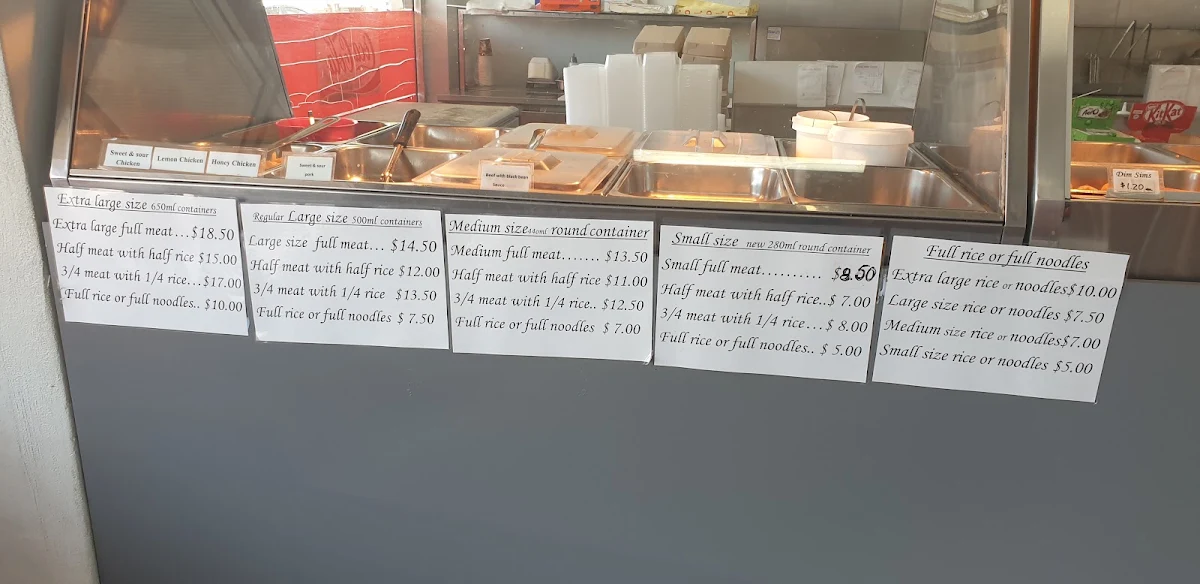 Coca-Cola
KitKat
Sweet & sour
Chicken
Lemon Chicken
Honey Chicken
Sweet & sour
pork
Beef with black bean
sauce
Dim Sims
$1.20
Extra large size 650ml containers
Extra large full meat...$18.50
Half meat with half rice $15.00
3/4 meat with 1/4 rice...$17.00
Full rice or full noodles.. $10.00
Regular Large size 500ml containers
Large size full meat... $14.50
Half meat with half rice $12.00
3/4 meat with 1/4 rice $13.50
Full rice or full noodles $ 7.50
Medium size 440ml round container
Medium full meat....... $13.50
Half meat with half rice $11.00
3/4 meat with 1/4 rice.. $12.50
Full rice or full noodles $ 7.00
Small size new 280ml round container
Small full meat.......... $8.50
Half meat with half rice..$ 7.00
3/4 meat with 1/4 rice...$ 8.00
Full rice or full noodles.. $ 5.00
Full rice or full noodles
Extra large rice or noodles$10.00
Large size rice or noodles $7.50
Medium size rice or noodles$7.00
Small size rice or noodles $5.00